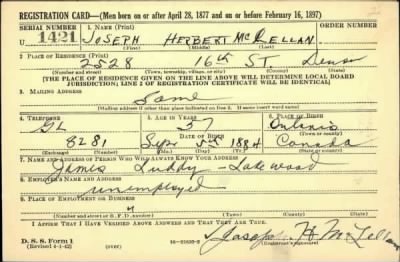 REGISTRATION CARD—(Men born on or after April 28, 1877 and on or before February 16, 1897)
SERIAL NUMBER 1. NAME (Print) ORDER NUMBER
U 1421 JOSEPH HERBERT McLELLAN
(First) (Middle) (Last)
2. PLACE OF RESIDENCE (Print)
2528 16th ST. Denver
(Number and street) (Town, township, village, or city) (County) (State)
[THE PLACE OF RESIDENCE GIVEN ON THE LINE ABOVE WILL DETERMINE LOCAL BOARD
JURISDICTION; LINE 2 OF REGISTRATION CERTIFICATE WILL BE IDENTICAL]
3. MAILING ADDRESS
Same
[Mailing address if other than place indicated on line 2. If same insert word same]
4. TELEPHONE 5. AGE IN YEARS 6. PLACE OF BIRTH
GL 57 Ontario
DATE OF BIRTH (Town or county)
8281 Sep 5th 1884 Canada
(Exchange) (Number) (Mo.) (Day) (Yr.) (State or country)
7. NAME AND ADDRESS OF PERSON WHO WILL ALWAYS KNOW YOUR ADDRESS
James Luddy - Lakewood
8. EMPLOYER'S NAME AND ADDRESS
unemployed
9. PLACE OF EMPLOYMENT OR BUSINESS
(Number and street or R. F. D. number) (Town) (County) (State)
I AFFIRM THAT I HAVE VERIFIED ABOVE ANSWERS AND THAT THEY ARE TRUE.
D. S. S. Form 1
(Revised 4-1-42) (over) 16—21630-2 Joseph H McLellan
(Registrant's signature)